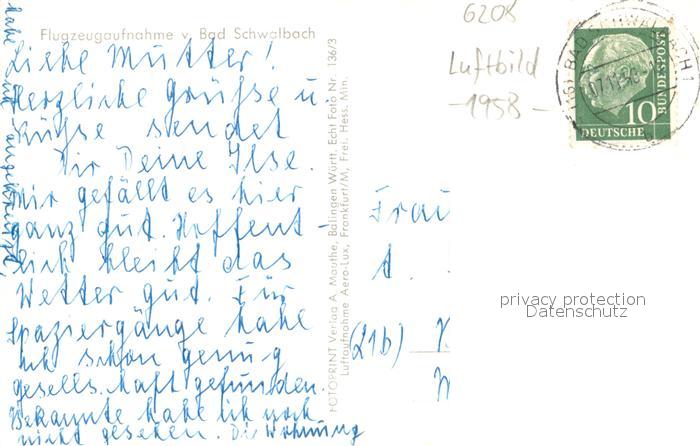 6208
Luftbild
-1958-
Flugzeugaufnahme v. Bad Schwalbach
Liebe Mutter!
Herzliche Grüße u.
Küsse sendet
Dir Deine Ilse.
Mir gefällt es hier
ganz gut. Hoffent-
lich bleibt das
Wetter gut. Für
Spaziergänge habe
ich schon genug
Gesellschaft gefunden.
Bekannte habe ich noch
nicht gesehen. Die Wohnung
habe
angekreuzt.
FOTOPRINT Verlag A. Mauthe, Balingen Württ. Echt Foto Nr. 136/3
Luftaufnahme Aero-Lux, Frankfurt/M, Frei. Hess. Min.
Frau
(21b)
BAD SCHWALBACH 1
10
DEUTSCHE
BUNDESPOST
b
privacy protection
Datenschutz